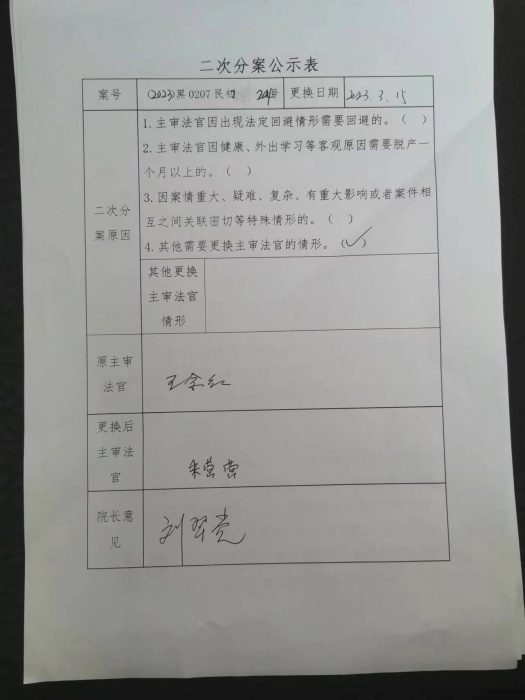 二次分案公示表
案号 (2023)黑0207民初 号 更换日期 2023.3.15
1.主审法官因出现法定回避情形需要回避的。（ ）
2.主审法官因健康、外出学习等客观原因需要脱产一
个月以上的。（ ）
3.因案情重大、疑难、复杂、有重大影响或者案件相
互之间关联密切等特殊情形的。（ ）
4.其他需要更换主审法官的情形。（✓）
二次分
案原因
其他更换
主审法官
情形
原主审
法官
王
更换后
主审法
官
朱营营
院长意
见
刘